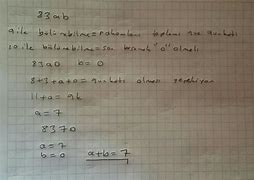 83ab
9 ile bölünebilme = rakamları toplamı 9'un katı
10 ile bölünebilme = son basamak "0" olmalı
83a0 b=0
8+3+a+0 = 9'un katı olması gerekiyor
11+a = 9k
a=7
8370
a=7
b=0 a+b=7